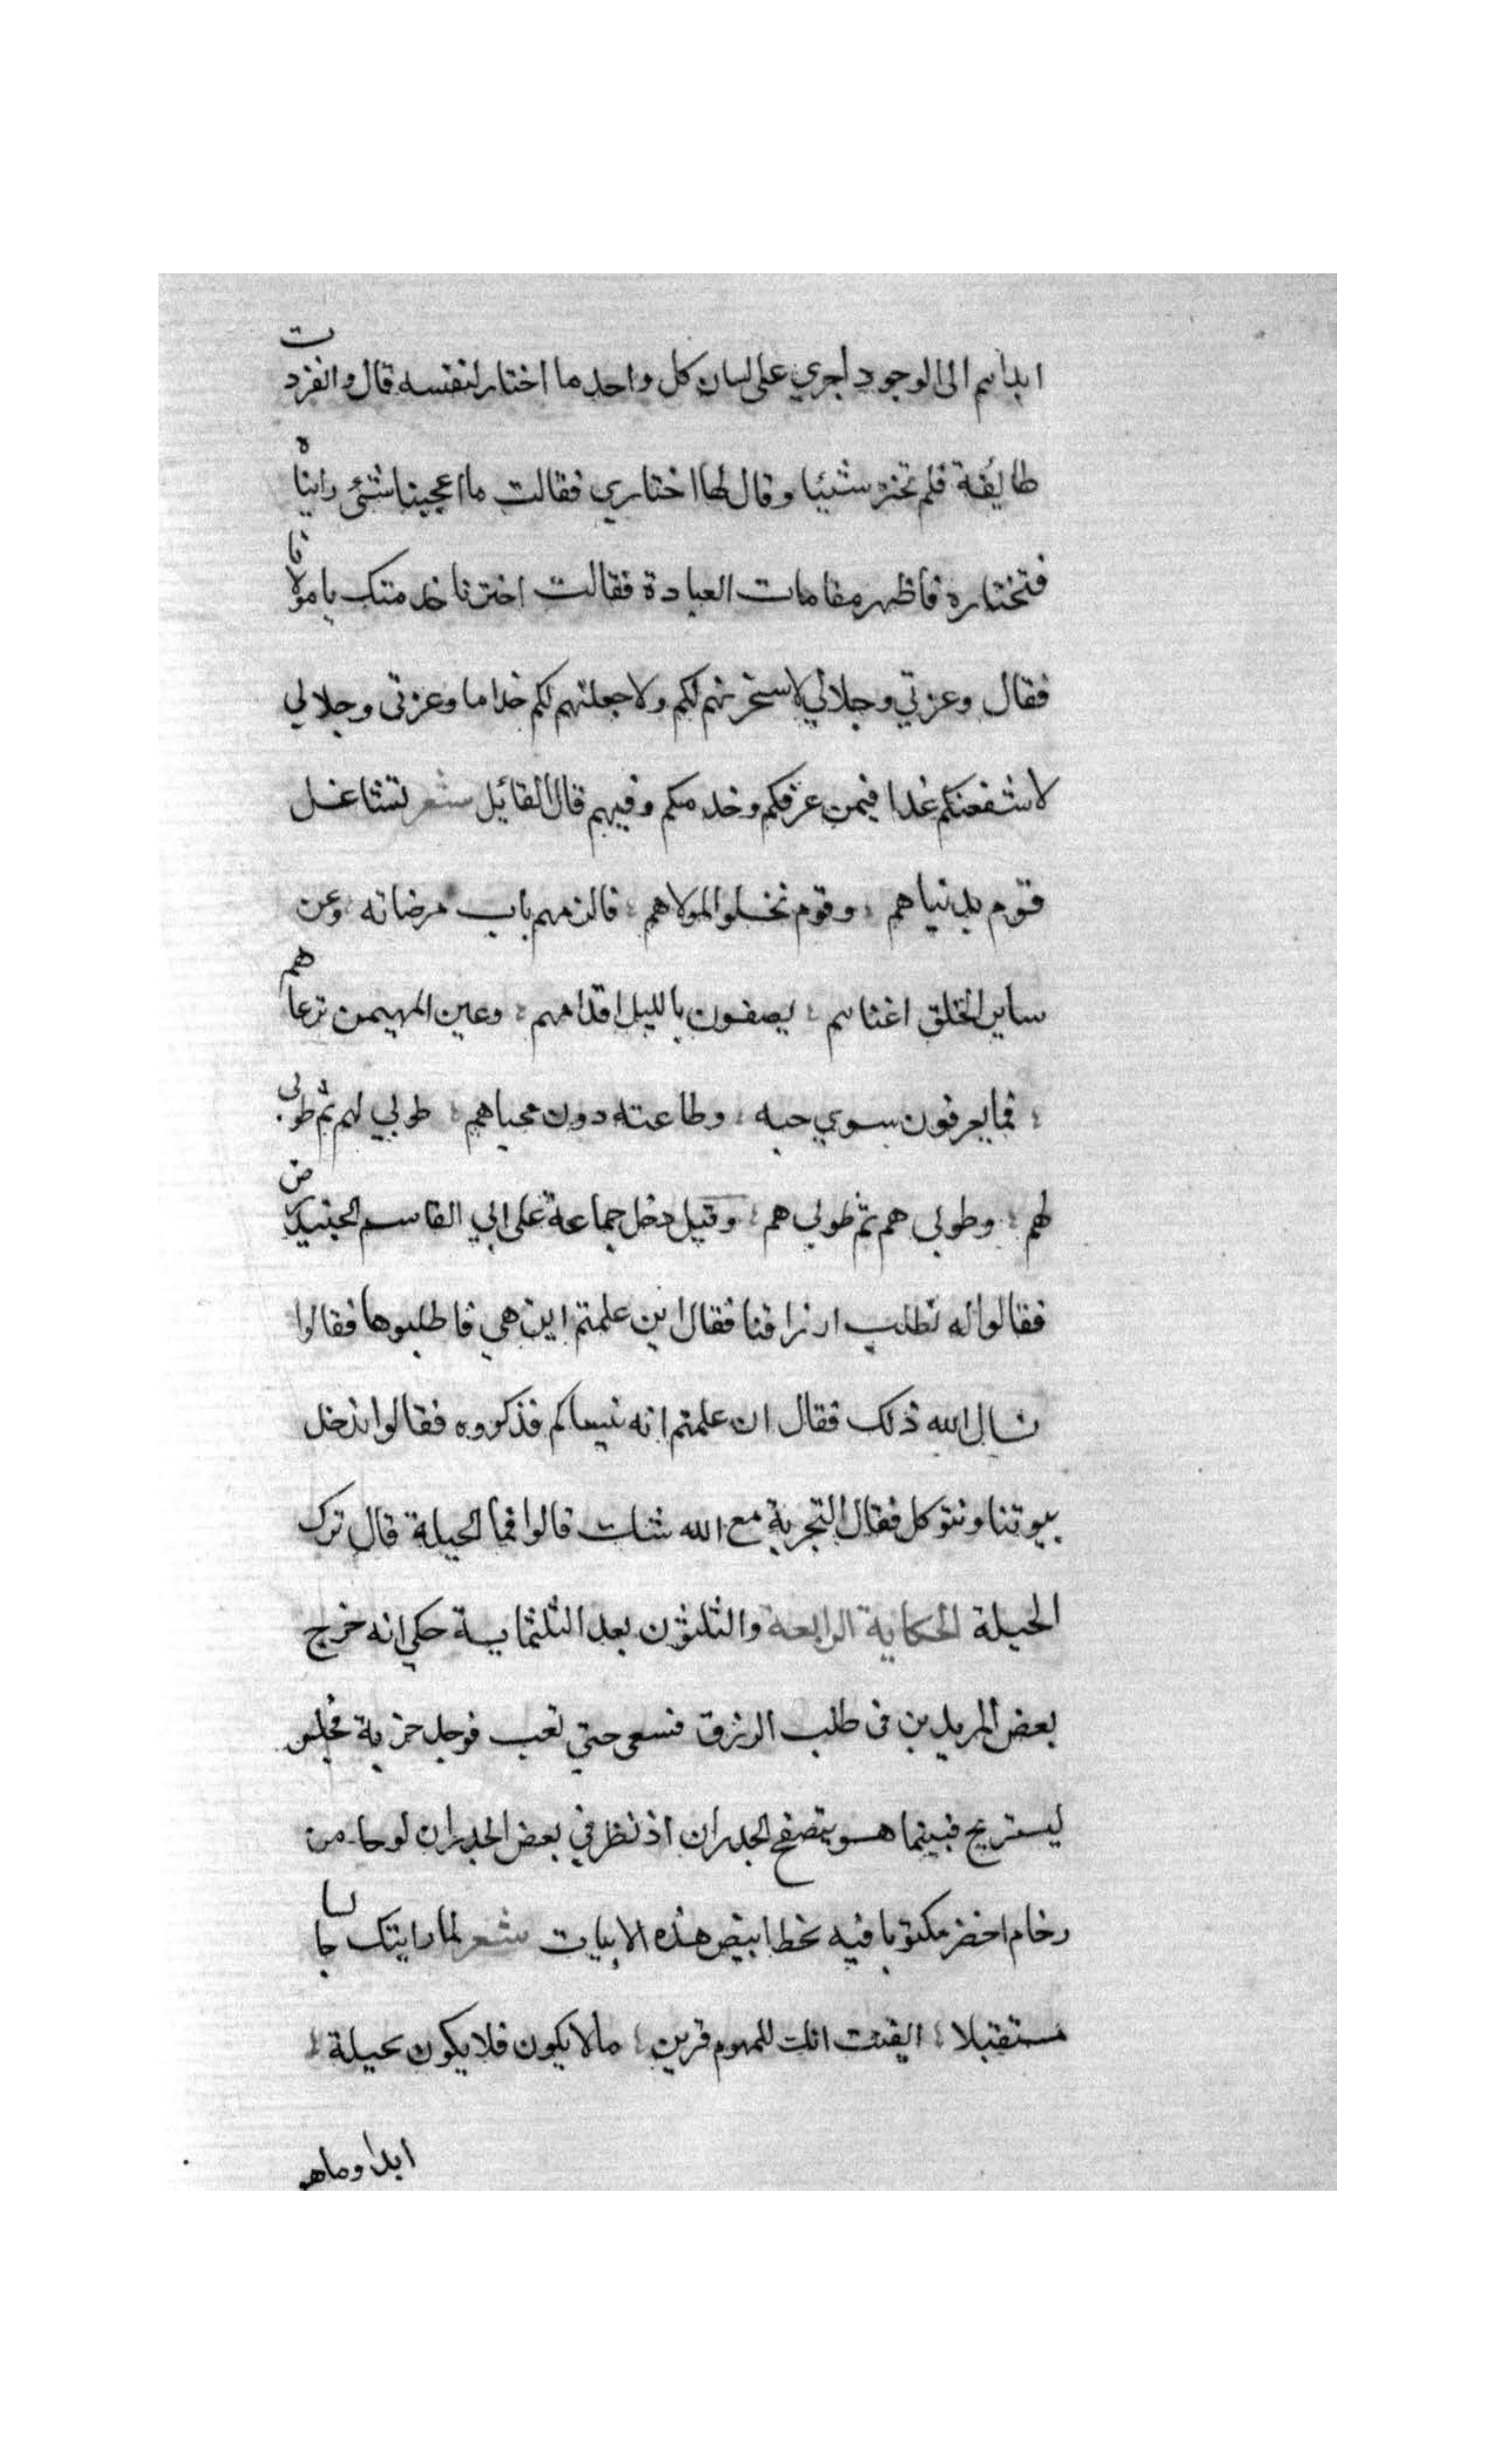 ابداهم الى الوجود اجري على لسان كل واحد ما اختار لنفسه قال وانفردت
طايفة فلم تختر شيئا وقال لها اختاري فقالت ما اعجبنا شئ رايناه
فنختاره فاظهر مقامات العبادة فقالت اخترنا خدمتك يا مولانا
فقال وعزتي وجلالي لاسخرنهم لكم ولاجعلنهم لكم خداما وعزتي وجلالي
لاشفعنكم غدا فيمن عرفكم وخدمكم وفيهم قال القائل شعر تشاغل
قوم بدنياهم ؛ وقوم تخلوا لمولاهم ؛ فالزمهم باب مرضاته ؛ وعن
ساير الخلق اغناهم ؛ يصفون بالليل اقدامهم ؛ وعين المهيمن ترعاهم
؛ فما يعرفون سوي حبه ؛ وطاعته دون محياهم ؛ طوبي لهم ثم طوبى
لهم ؛ وطوبى هم ثم طوبي هم ؛ وقيل دخل جماعة على ابي القاسم الجنيد رض
فقالوا له نطلب ارزاقنا فقال اين علمتم اين هي فاطلبوها فقالوا
نسال الله ذلك فقال ان علمتم انه نيساكم فذكروه فقالوا ندخل
بيوتنا ونتوكل فقال التجربة مع الله شات قالوا فما الحيلة قال ترك
الحيلة الحكاية الرابعة والثلثون بعد الثلثماية حكي انه خرج
بعض المريدين فى طلب الرزق فسعى حتي تعب فوجد خربة فجلس
ليستريح فبينما هو يتصفح الجدران اذ نظر في بعض الجدران لوحا من
رخام اخضر مكتوبا فيه بخط ابيض هذه الابيات شعر لما رايتك جالسا
مستقبلا ؛ ايقنت انك للهموم قرين ؛ ما لا يكون فلا يكون بحيلة ؛
ابدا وما هو